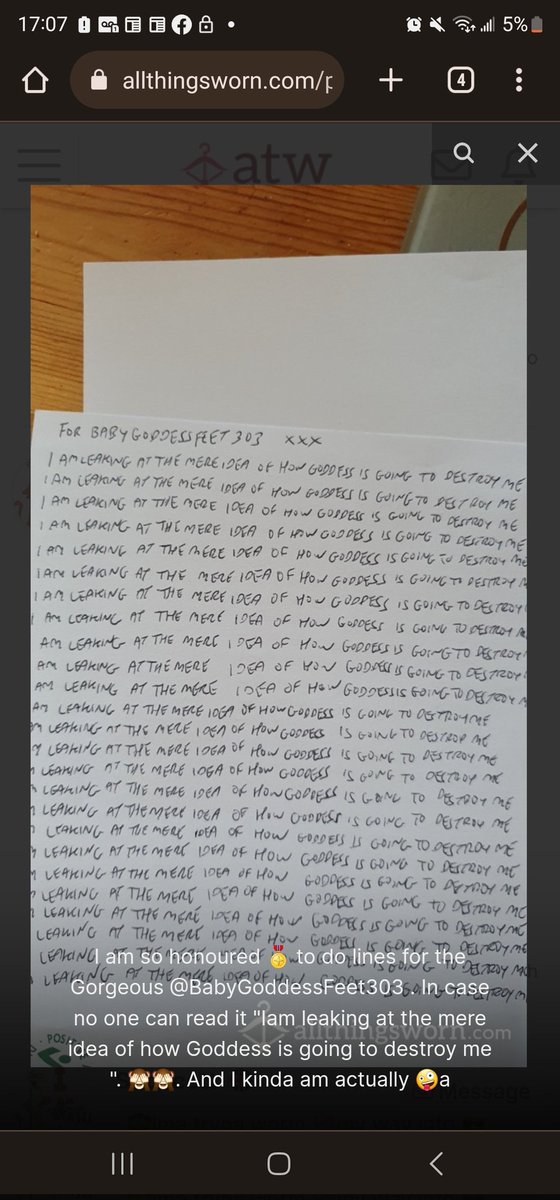 17:07
5%
allthingsworn.com/p
4
atw
FOR BABYGODDESSFEET303 xxx
I AM LEAKING AT THE MERE IDEA OF HOW GODDESS IS GOING TO DESTROY ME
I AM LEAKING AT THE MERE IDEA OF HOW GODDESS IS GOING TO DESTROY ME
I AM LEAKING AT THE MERE IDEA OF HOW GODDESS IS GOING TO DESTROY ME
I AM LEAKING AT THE MERE IDEA OF HOW GODDESS IS GOING TO DESTROY ME
I AM LEAKING AT THE MERE IDEA OF HOW GODDESS IS GOING TO DESTROY ME
I AM LEAKING AT THE MERE IDEA OF HOW GODDESS IS GOING TO DESTROY
I AM LEAKING AT THE MERE IDEA OF HOW GODDESS IS GOING TO DESTROY
I AM LEAKING AT THE MERE IDEA OF HOW GODDESS IS GOING TO DESTROY
AM LEAKING AT THE MERE IDEA OF HOW GODDESS IS GOING TO DESTROY
AM LEAKING AT THE MERE IDEA OF HOW GODDESS IS GOING TO DESTROY
AM LEAKING AT THE MERE IDEA OF HOW GODDESS IS GOING TO DESTROY
AM LEAKING AT THE MERE IDEA OF HOW GODDESS IS GOING TO DESTROY ME
M LEAKING AT THE MERE IDEA OF HOW GODDESS IS GOING TO DESTROY ME
LEAKING AT THE MERE IDEA OF HOW GODDESS IS GOING TO DESTROY ME
LEAKING AT THE MERE IDEA OF HOW GODDESS IS GOING TO DESTROY ME
LEAKING AT THE MERE IDEA OF HOW GODDESS IS GOING TO DESTROY ME
LEAKING AT THE MERE IDEA OF HOW GODDESS IS GOING TO DESTROY ME
LEAKING AT THE MERE IDEA OF HOW GODDESS IS GOING TO DESTROY ME
LEAKING AT THE MERE IDEA OF HOW GODDESS IS GOING TO DESTROY ME
LEAKING AT THE MERE IDEA OF HOW GODDESS IS GOING TO DESTROY ME
LEAKING AT THE MERE IDEA OF HOW GODDESS IS GOING TO DESTROY ME
LEAKING AT THE MERE IDEA OF HOW GODDESS IS GOING TO DESTROY ME
LEAKING AT THE MERE IDEA OF HOW GODDESS IS GOING TO DESTROY
LEAKING AT THE MERE IDEA OF HOW GODDESS IS GOING TO DESTROY
LEAKING AT THE MERE IDEA OF HOW GODDESS IS GOING TO DESTROY
I am so honoured 🏅 to do lines for the
Gorgeous @BabyGoddessFeet303 . In case
no one can read it "Iam leaking at the mere
allthingsworn.com
idea of how Goddess is going to destroy me
". 🙈🙈. And I kinda am actually 🤪a
Message